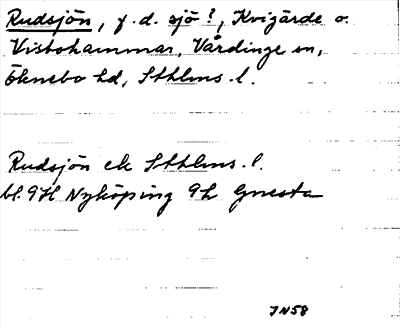 Rudsjön, f.d. sjö?, Kvigärde o.
Visbohammar, Vårdinge sn,
Öknebo hd, Sthlms l.
Rudsjön ek Sthlms l.
bl. 9H Nyköping 9h Gnesta
JN58